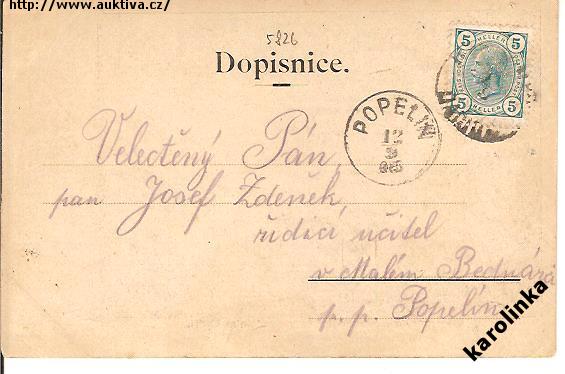 http://www.auktiva.cz/
5826
Dopisnice.
5 HELLER 5
5 5
POPELIN
12
3
Veloctěný Pán,
pan Josef Zdeněk,
řídící učitel
v Malém Bednárci
p. p. Popelín
karolinka